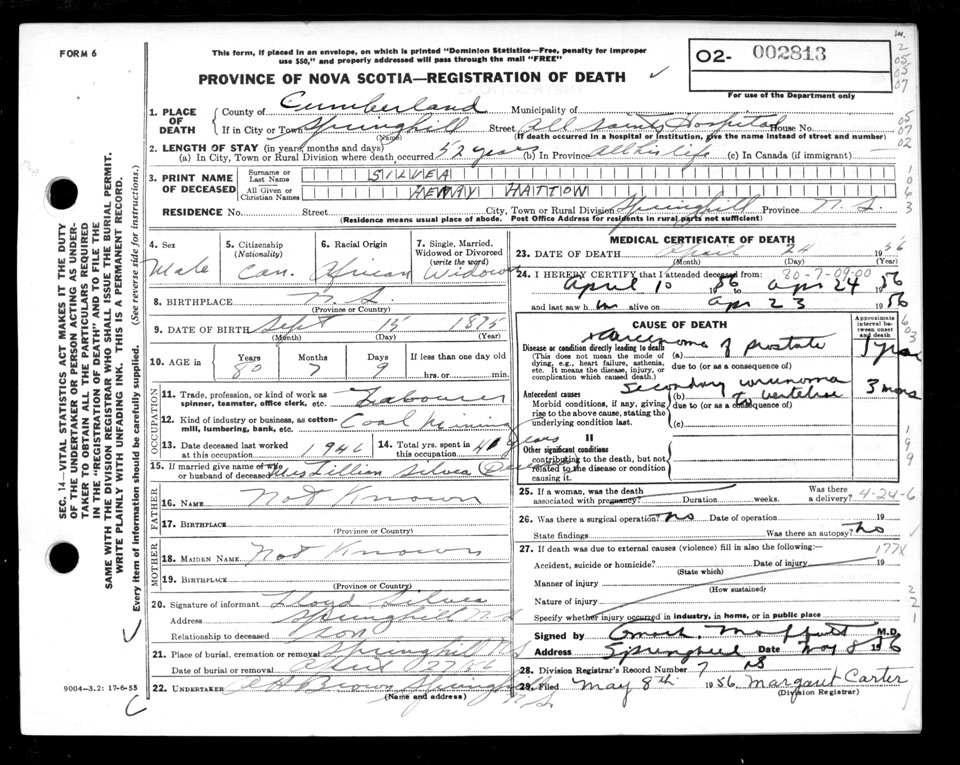 FORM 6
This form, if placed in an envelope, on which is printed "Dominion Statistics—Free, penalty for improper
use $50," and properly addressed will pass through the mail "FREE"
PROVINCE OF NOVA SCOTIA—REGISTRATION OF DEATH
02- 002813
For use of the Department only
1. PLACE OF DEATH
County of Cumberland Municipality of
If in City or Town Springhill Street All Saints Hospital House No.
(Name) (If death occurred in a hospital or institution, give the name instead of street and number)
2. LENGTH OF STAY (in years, months and days)
(a) In City, Town or Rural Division where death occurred 52 years (b) In Province All his life (c) In Canada (if immigrant)
3. PRINT NAME OF DECEASED
Surname or Last Name SILVEA
All Given or Christian Names HENRY HATTON
RESIDENCE No. Street City, Town or Rural Division Springhill Province N.S.
(Residence means usual place of abode. Post Office Address for residents in rural parts not sufficient)
4. Sex Male
5. Citizenship (Nationality) Can.
6. Racial Origin African
7. Single, Married, Widowed or Divorced (write the word) Widower
8. BIRTHPLACE N.S.
(Province or Country)
9. DATE OF BIRTH Sept 15 1875
(Month) (Day) (Year)
10. AGE in Years 80 Months 7 Days 9 If less than one day old
hrs. or min.
OCCUPATION
11. Trade, profession, or kind of work as spinner, teamster, office clerk, etc. Labourer
12. Kind of industry or business, as cotton-mill, lumbering, bank, etc. Coal Mining
13. Date deceased last worked at this occupation 1946
14. Total yrs. spent in this occupation 41 years
15. If married give name of wife or husband of deceased Mrs Lillian Silvea
FATHER
16. NAME Not Known
17. BIRTHPLACE
(Province or Country)
MOTHER
18. MAIDEN NAME Not Known
19. BIRTHPLACE
(Province or Country)
20. Signature of informant Lloyd Silvea
Address Springhill N.S
Relationship to deceased Son
21. Place of burial, cremation or removal Springhill N.S
Date of burial or removal April 27 56
22. UNDERTAKER Brown Springhill N.S.
(Name and address)
MEDICAL CERTIFICATE OF DEATH
23. DATE OF DEATH April 24 1956
(Month) (Day) (Year)
80-7-09-00
24. I HEREBY CERTIFY that I attended deceased from:
April 10 1956 to Apr 24 1956
and last saw him alive on Apr 23 1956
CAUSE OF DEATH
Approximate interval between onset and death
Disease or condition directly leading to death
(This does not mean the mode of dying, e.g., heart failure, asthenia, etc. It means the disease, injury, or complication which caused death.)
(a) Carcinoma of prostate 1 year
due to (or as a consequence of)
Antecedent causes
Morbid conditions, if any, giving rise to the above cause, stating the underlying condition last.
(b) Secondary carcinoma to vertebrae 3 mons
due to (or as a consequence of)
(c)
II
Other significant conditions
contributing to the death, but not related to the disease or condition causing it.
25. If a woman, was the death associated with pregnancy? Duration weeks. Was there a delivery?
4-24-6
26. Was there a surgical operation? no Date of operation 19
State findings Was there an autopsy? no
27. If death was due to external causes (violence) fill in also the following:—
177X
Accident, suicide or homicide? Date of injury 19
(State which)
Manner of injury
(How sustained)
Nature of injury
Specify whether injury occurred in industry, in home, or in public place
Signed by M.D.
Address Springhill Date May 8 1956
28. Division Registrar's Record Number 7
29. Filed May 8th 1956 Margaret Carter
(Division Registrar)
SEC. 14—VITAL STATISTICS ACT MAKES IT THE DUTY
OF THE UNDERTAKER OR PERSON ACTING AS UNDER-
TAKER TO OBTAIN ALL THE PARTICULARS REQUIRED
IN THE "REGISTRATION OF DEATH" AND TO FILE THE
SAME WITH THE DIVISION REGISTRAR WHO SHALL ISSUE THE BURIAL PERMIT.
WRITE PLAINLY WITH UNFADING INK. THIS IS A PERMANENT RECORD.
Every item of information should be carefully supplied. (See reverse side for instructions.)
9004—3.2: 17-6-55